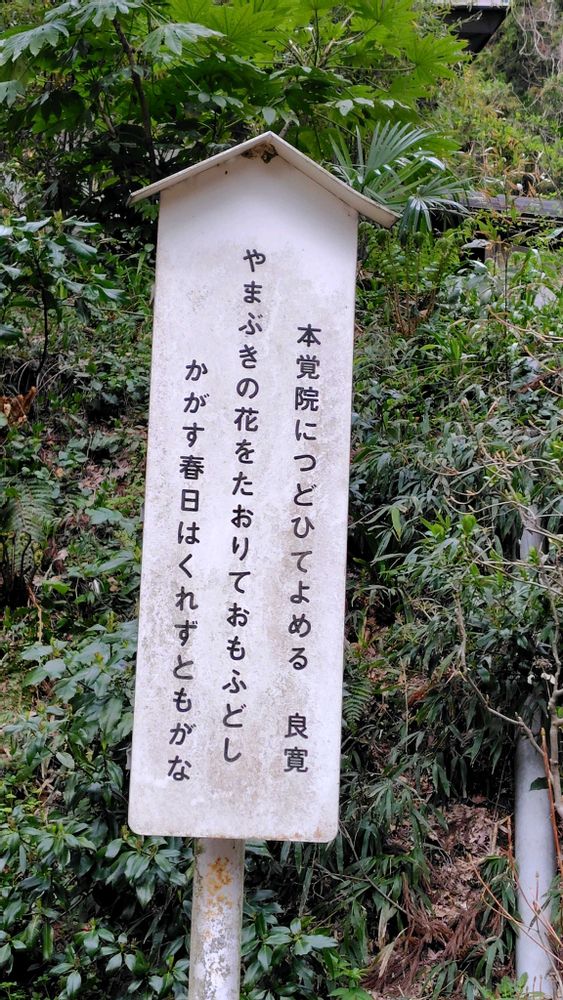 本覚院につどひてよめる　良寛
やまぶきの花をたおりておもふどし
かがす春日はくれずともがな